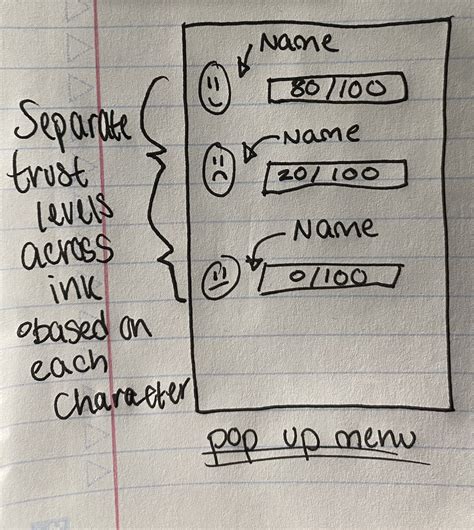 Name
80/100
Name
20/100
Name
0/100
Separate
trust
levels
across
ink
based on
each
character
pop up menu